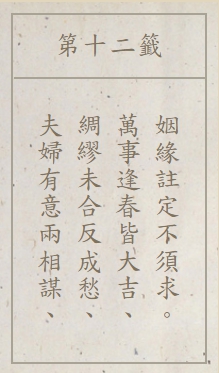 第十二籤
夫婦有意兩相謀、
綢繆未合反成愁、
萬事逢春皆大吉、
姻緣註定不須求。